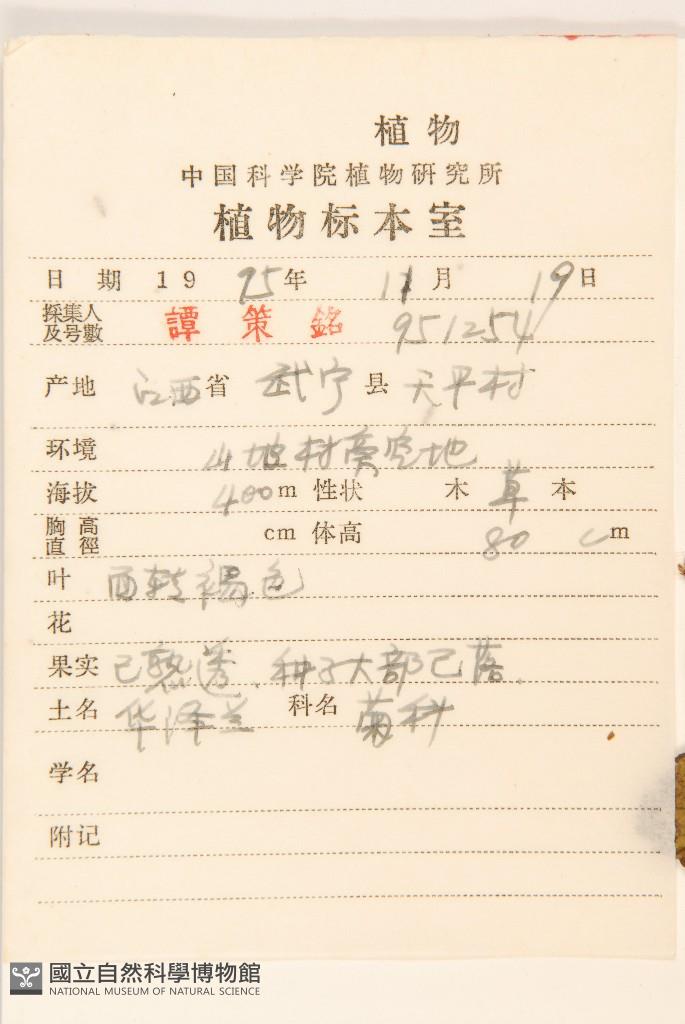 植物
中国科学院植物研究所
植物标本室
日期 1995年 11月 19日
採集人及号數 譚策銘 951254
产地 江西省 武宁县 天平村
环境 山地村旁空地
海拔 400m 性状 木 草 本
胸高直徑 cm 体高 80 cm
叶 褐色
花
果实 已熟透、种子大部已落.
土名 华泽兰 科名 菊科
学名
附记
國立自然科學博物館
NATIONAL MUSEUM OF NATURAL SCIENCE